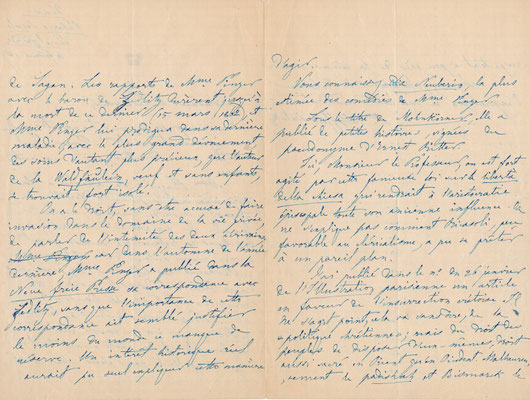 de Sagan. Les rapports de Mme Enger
avec le baron de Zedlitz durèrent jusqu'à
la mort de ce dernier, 15 mars
Mme Enger lui prodigua dans sa dernière
maladie avec le plus grand dévouement
des soins d'autant plus précieux, que l'auteur
de la Waldfräulein, veuf et sans enfants,
se trouvait fort isolé.
On a le droit, sans être accusé de faire
invasion dans le domaine de la vie privée
de parler de l'intimité des deux écrivains
car dans l'automne de l'année
dernière, Mme Enger a publié dans la
Neue freie Presse sa correspondance avec
Zedlitz, sans que l'importance de cette
correspondance ait semblé justifier
le moins du monde ce manque de
réserve. Un intérêt historique réel
aurait pu seul expliquer cette manière
d'agir.
Vous connaissez la plus
des contrées de Mme Enger
Sous le titre de elle a
publié de petites histoires, signées du
pseudonyme d'Ernst Ritter.
Ici Monsieur le Professeur, on est fort
agité par cette fameuse loi sur la liberté
della chiesa qui rendrait à l'aristocratie
toute son ancienne influence. Je
ne m'explique pas comment Ricasoli peu
favorable au a pu se prêter
à un pareil plan.
J'ai publié dans le no du 26 janvier
de l'Illustration parisienne un article
en faveur de l'insurrection crétoise. Il
ne s'agit point de la de la
politique chrétienne; mais du droit des
peuples de disposer d'eux-mêmes, droit
aussi sacré en Orient qu'en Occident. Malheureu-
sement le padishah et Bismarck le